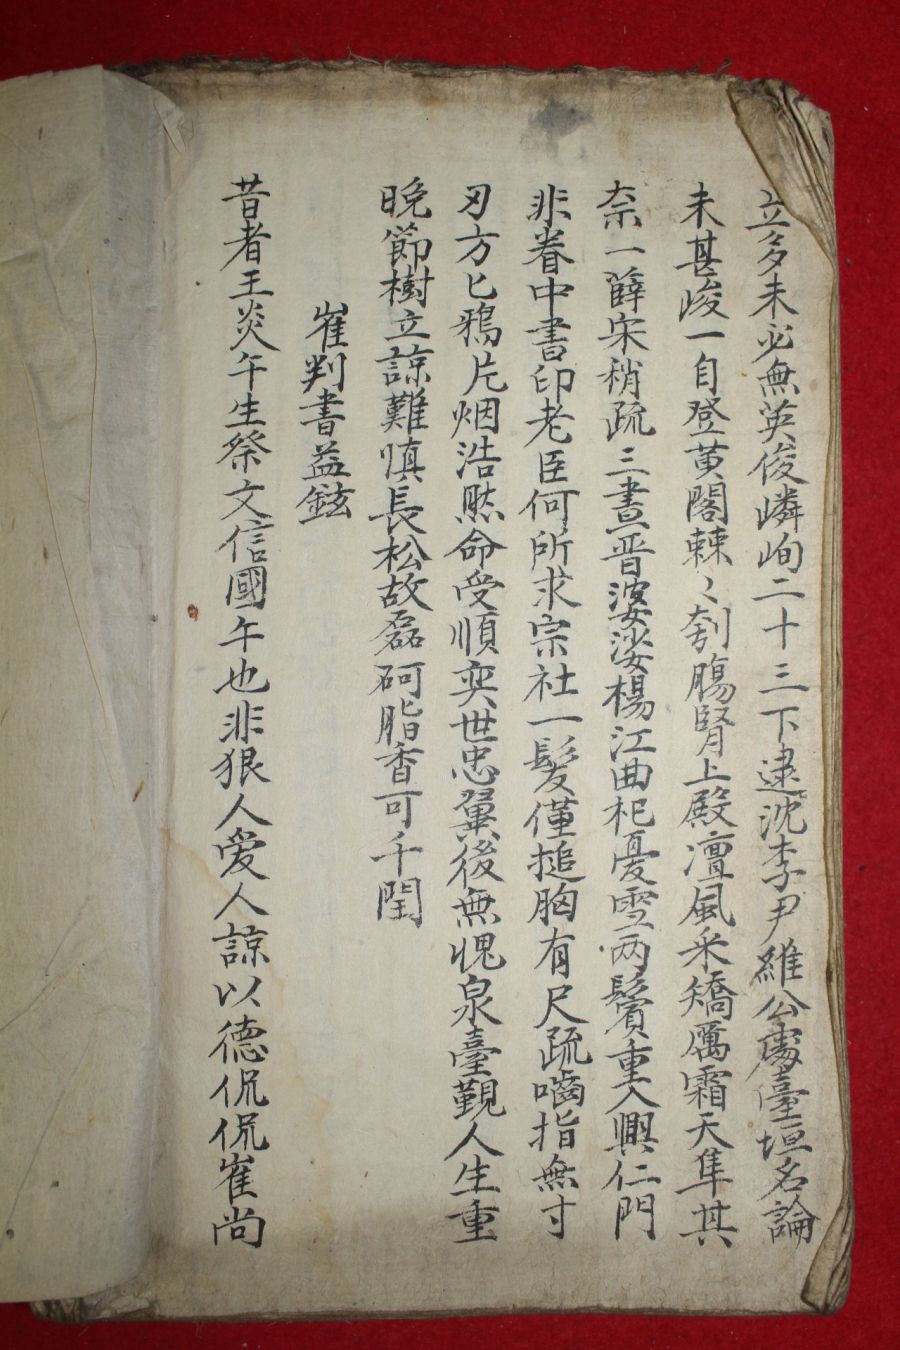 立多未必無英俊嶙峋二十三下逮沈李尹維公處臺垣名論
未甚峻一自登黃閣棘〻刳膓腎上殿澶風采矯厲霜天隼其
奈一薛宋稍疏三晝晋婆娑楊江曲杞憂雪兩鬢重入興仁門
非眷中書印老臣何所求宗社一髮僅搥胸有尺疏嚙指無寸
刃方匕鴉片烟浩然命受順奕世忠冀後無愧泉臺覲人生重
晚節樹立諒難愼長松故磊砢脂香可千閏
崔判書益鉉
昔者王炎午生祭文信國午也非狠人愛人諒以德侃侃崔尚